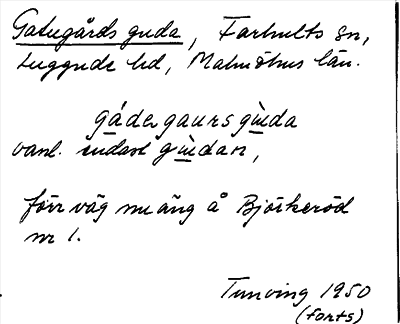 Gatugårds guda, Farhults sn,
Luggude hd, Malmöhus län.
gádergaursgùeda
vanl. endast gùedan,
förr väg nu äng å Bjötkeröd
nr 1.
Tunving 1950
(forts)